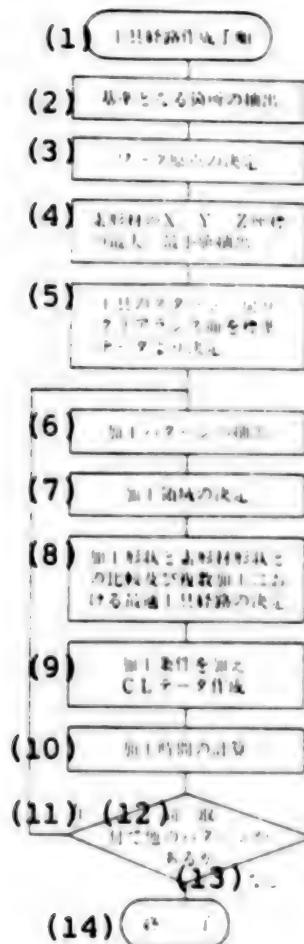 (1) 工具経路作成手順
(2) 基準となる箇所の抽出
(3) ワーク原点の決定
(4) 素形材のX Y Z座標
の最大 最小値抽出
(5) 工具のスタート
クリアランス面を標準
データより決定
(6) 加工パターンの抽出
(7) 加工領域の決定
(8) 加工形状と素形材形状と
の比較及び複数加工にお
ける最適工具経路の決定
(9) 加工条件を加え
CLデータ作成
(10) 加工時間の計算
(11) (12) 取
付で他のパターンが
あるか
(13)
(14) 終 了